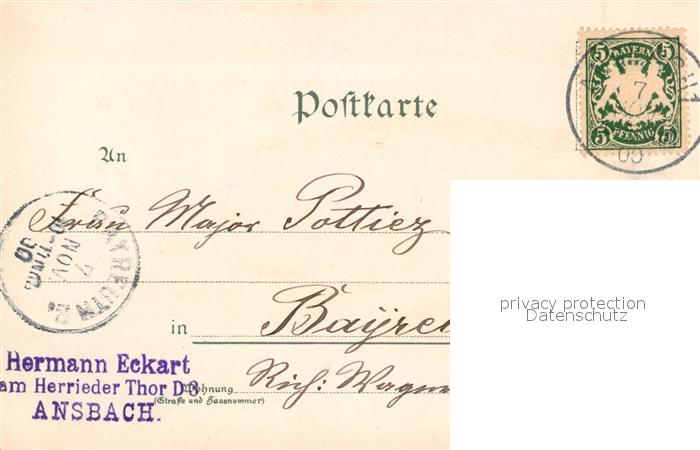 5 BAYERN 5
5 PFENNIG 5
7
00
Postkarte
An
Frau Major Pottiez
BAYREUTH 2.
7
NOV.
00
privacy protection
Datenschutz
in
Bayre
Hermann Eckart
am Herrieder Thor D 3
ANSBACH.
Wohnung
(Straße und Hausnummer)
Rich: Wagne